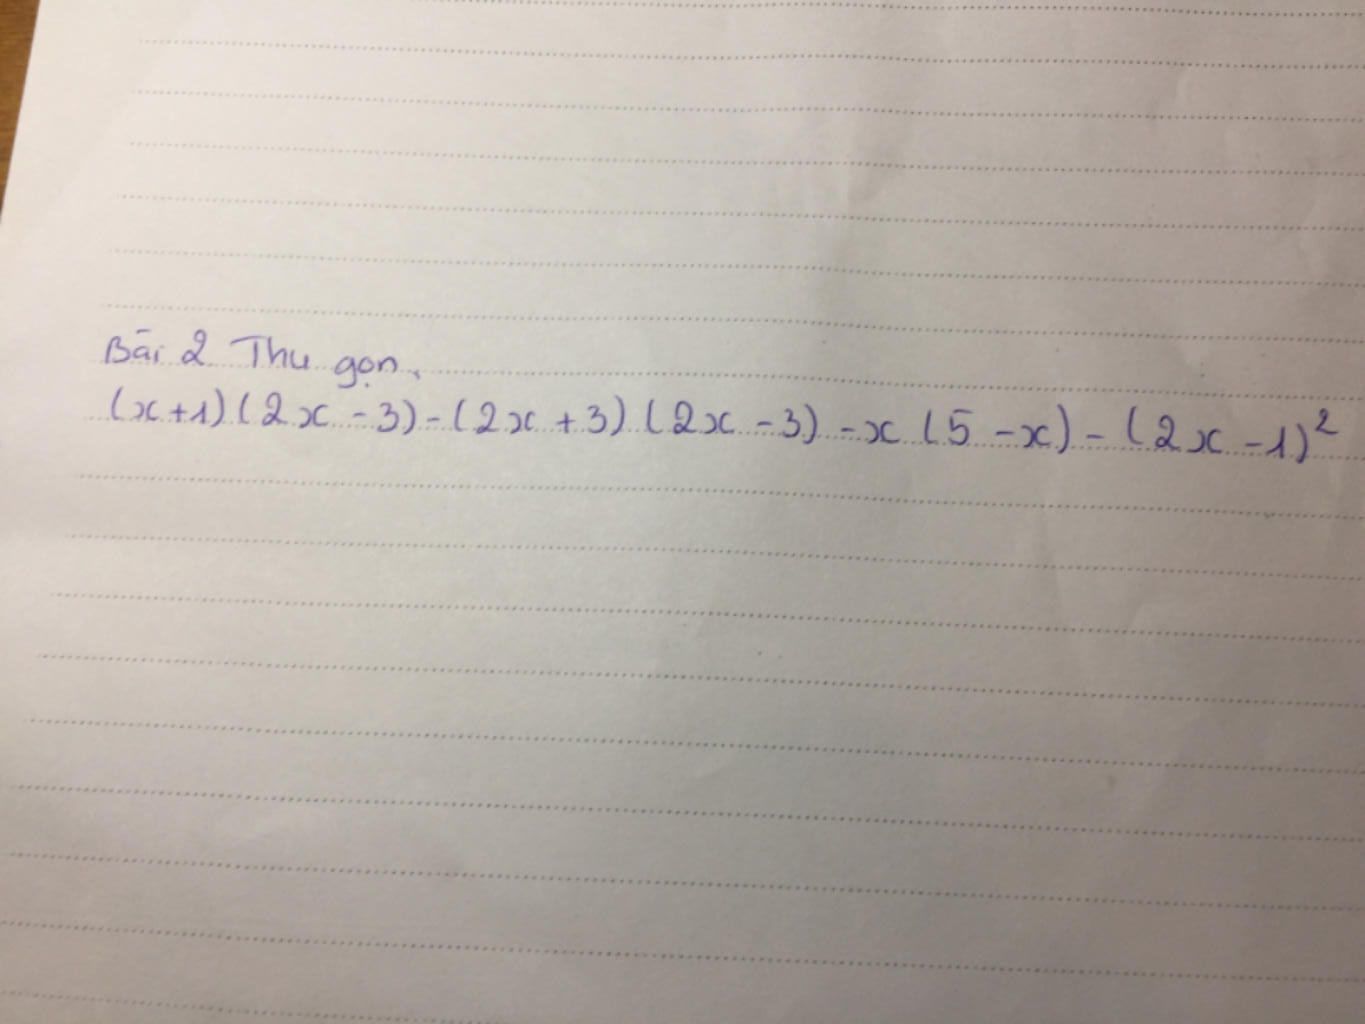 Bài 2 Thu gọn.
(x+1)(2x-3)-(2x+3)(2x-3)-x(5-x)-(2x-1)²